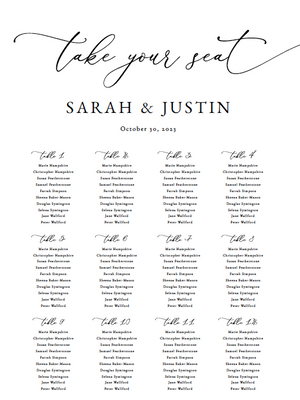 take your seat
SARAH & JUSTIN
October 30, 2023
table 1
Marie Hampshire
Christopher Hampshire
Susan Featherstone
Samuel Featherstone
Farrah Simpson
Sheena Baker-Mason
Douglas Symington
Selena Symington
Jane Wallford
Peter Wallford
table 2
Marie Hampshire
Christopher Hampshire
Susan Featherstone
Samuel Featherstone
Farrah Simpson
Sheena Baker-Mason
Douglas Symington
Selena Symington
Jane Wallford
Peter Wallford
table 3
Marie Hampshire
Christopher Hampshire
Susan Featherstone
Samuel Featherstone
Farrah Simpson
Sheena Baker-Mason
Douglas Symington
Selena Symington
Jane Wallford
Peter Wallford
table 4
Marie Hampshire
Christopher Hampshire
Susan Featherstone
Samuel Featherstone
Farrah Simpson
Sheena Baker-Mason
Douglas Symington
Selena Symington
Jane Wallford
Peter Wallford
table 5
Marie Hampshire
Christopher Hampshire
Susan Featherstone
Samuel Featherstone
Farrah Simpson
Sheena Baker-Mason
Douglas Symington
Selena Symington
Jane Wallford
Peter Wallford
table 6
Marie Hampshire
Christopher Hampshire
Susan Featherstone
Samuel Featherstone
Farrah Simpson
Sheena Baker-Mason
Douglas Symington
Selena Symington
Jane Wallford
Peter Wallford
table 7
Marie Hampshire
Christopher Hampshire
Susan Featherstone
Samuel Featherstone
Farrah Simpson
Sheena Baker-Mason
Douglas Symington
Selena Symington
Jane Wallford
Peter Wallford
table 8
Marie Hampshire
Christopher Hampshire
Susan Featherstone
Samuel Featherstone
Farrah Simpson
Sheena Baker-Mason
Douglas Symington
Selena Symington
Jane Wallford
Peter Wallford
table 9
Marie Hampshire
Christopher Hampshire
Susan Featherstone
Samuel Featherstone
Farrah Simpson
Sheena Baker-Mason
Douglas Symington
Selena Symington
Jane Wallford
Peter Wallford
table 10
Marie Hampshire
Christopher Hampshire
Susan Featherstone
Samuel Featherstone
Farrah Simpson
Sheena Baker-Mason
Douglas Symington
Selena Symington
Jane Wallford
Peter Wallford
table 11
Marie Hampshire
Christopher Hampshire
Susan Featherstone
Samuel Featherstone
Farrah Simpson
Sheena Baker-Mason
Douglas Symington
Selena Symington
Jane Wallford
Peter Wallford
table 12
Marie Hampshire
Christopher Hampshire
Susan Featherstone
Samuel Featherstone
Farrah Simpson
Sheena Baker-Mason
Douglas Symington
Selena Symington
Jane Wallford
Peter Wallford